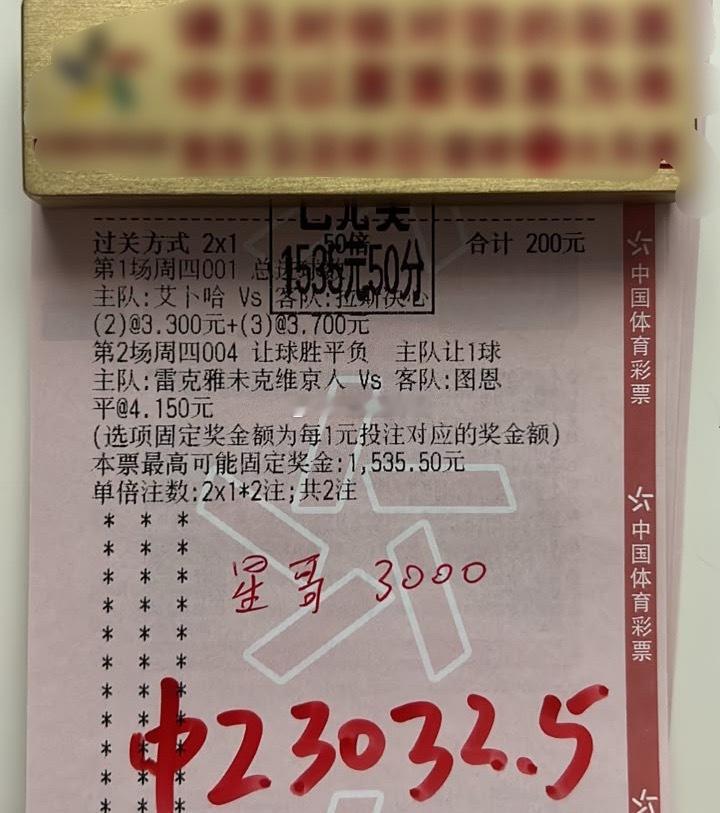 过关方式 2x1 50倍 合计 200元
已兑奖
1535元50分
第1场周四001 总进球数
主队:艾卜哈 Vs 客队:拉斯决心
(2)@3.300元+(3)@3.700元
第2场周四004 让球胜平负 主队让1球
主队:雷克雅未克维京人 Vs 客队:图恩
平@4.150元
(选项固定奖金额为每1元投注对应的奖金额)
本票最高可能固定奖金:1,535.50元
单倍注数:2x1*2注;共2注
* * *
* * *
* * *
星哥 3000
* * *
* * *
* * *
* * *
* * *
中23032.5
* * *
* * *
* * *
中国体育彩票
中国体育彩票